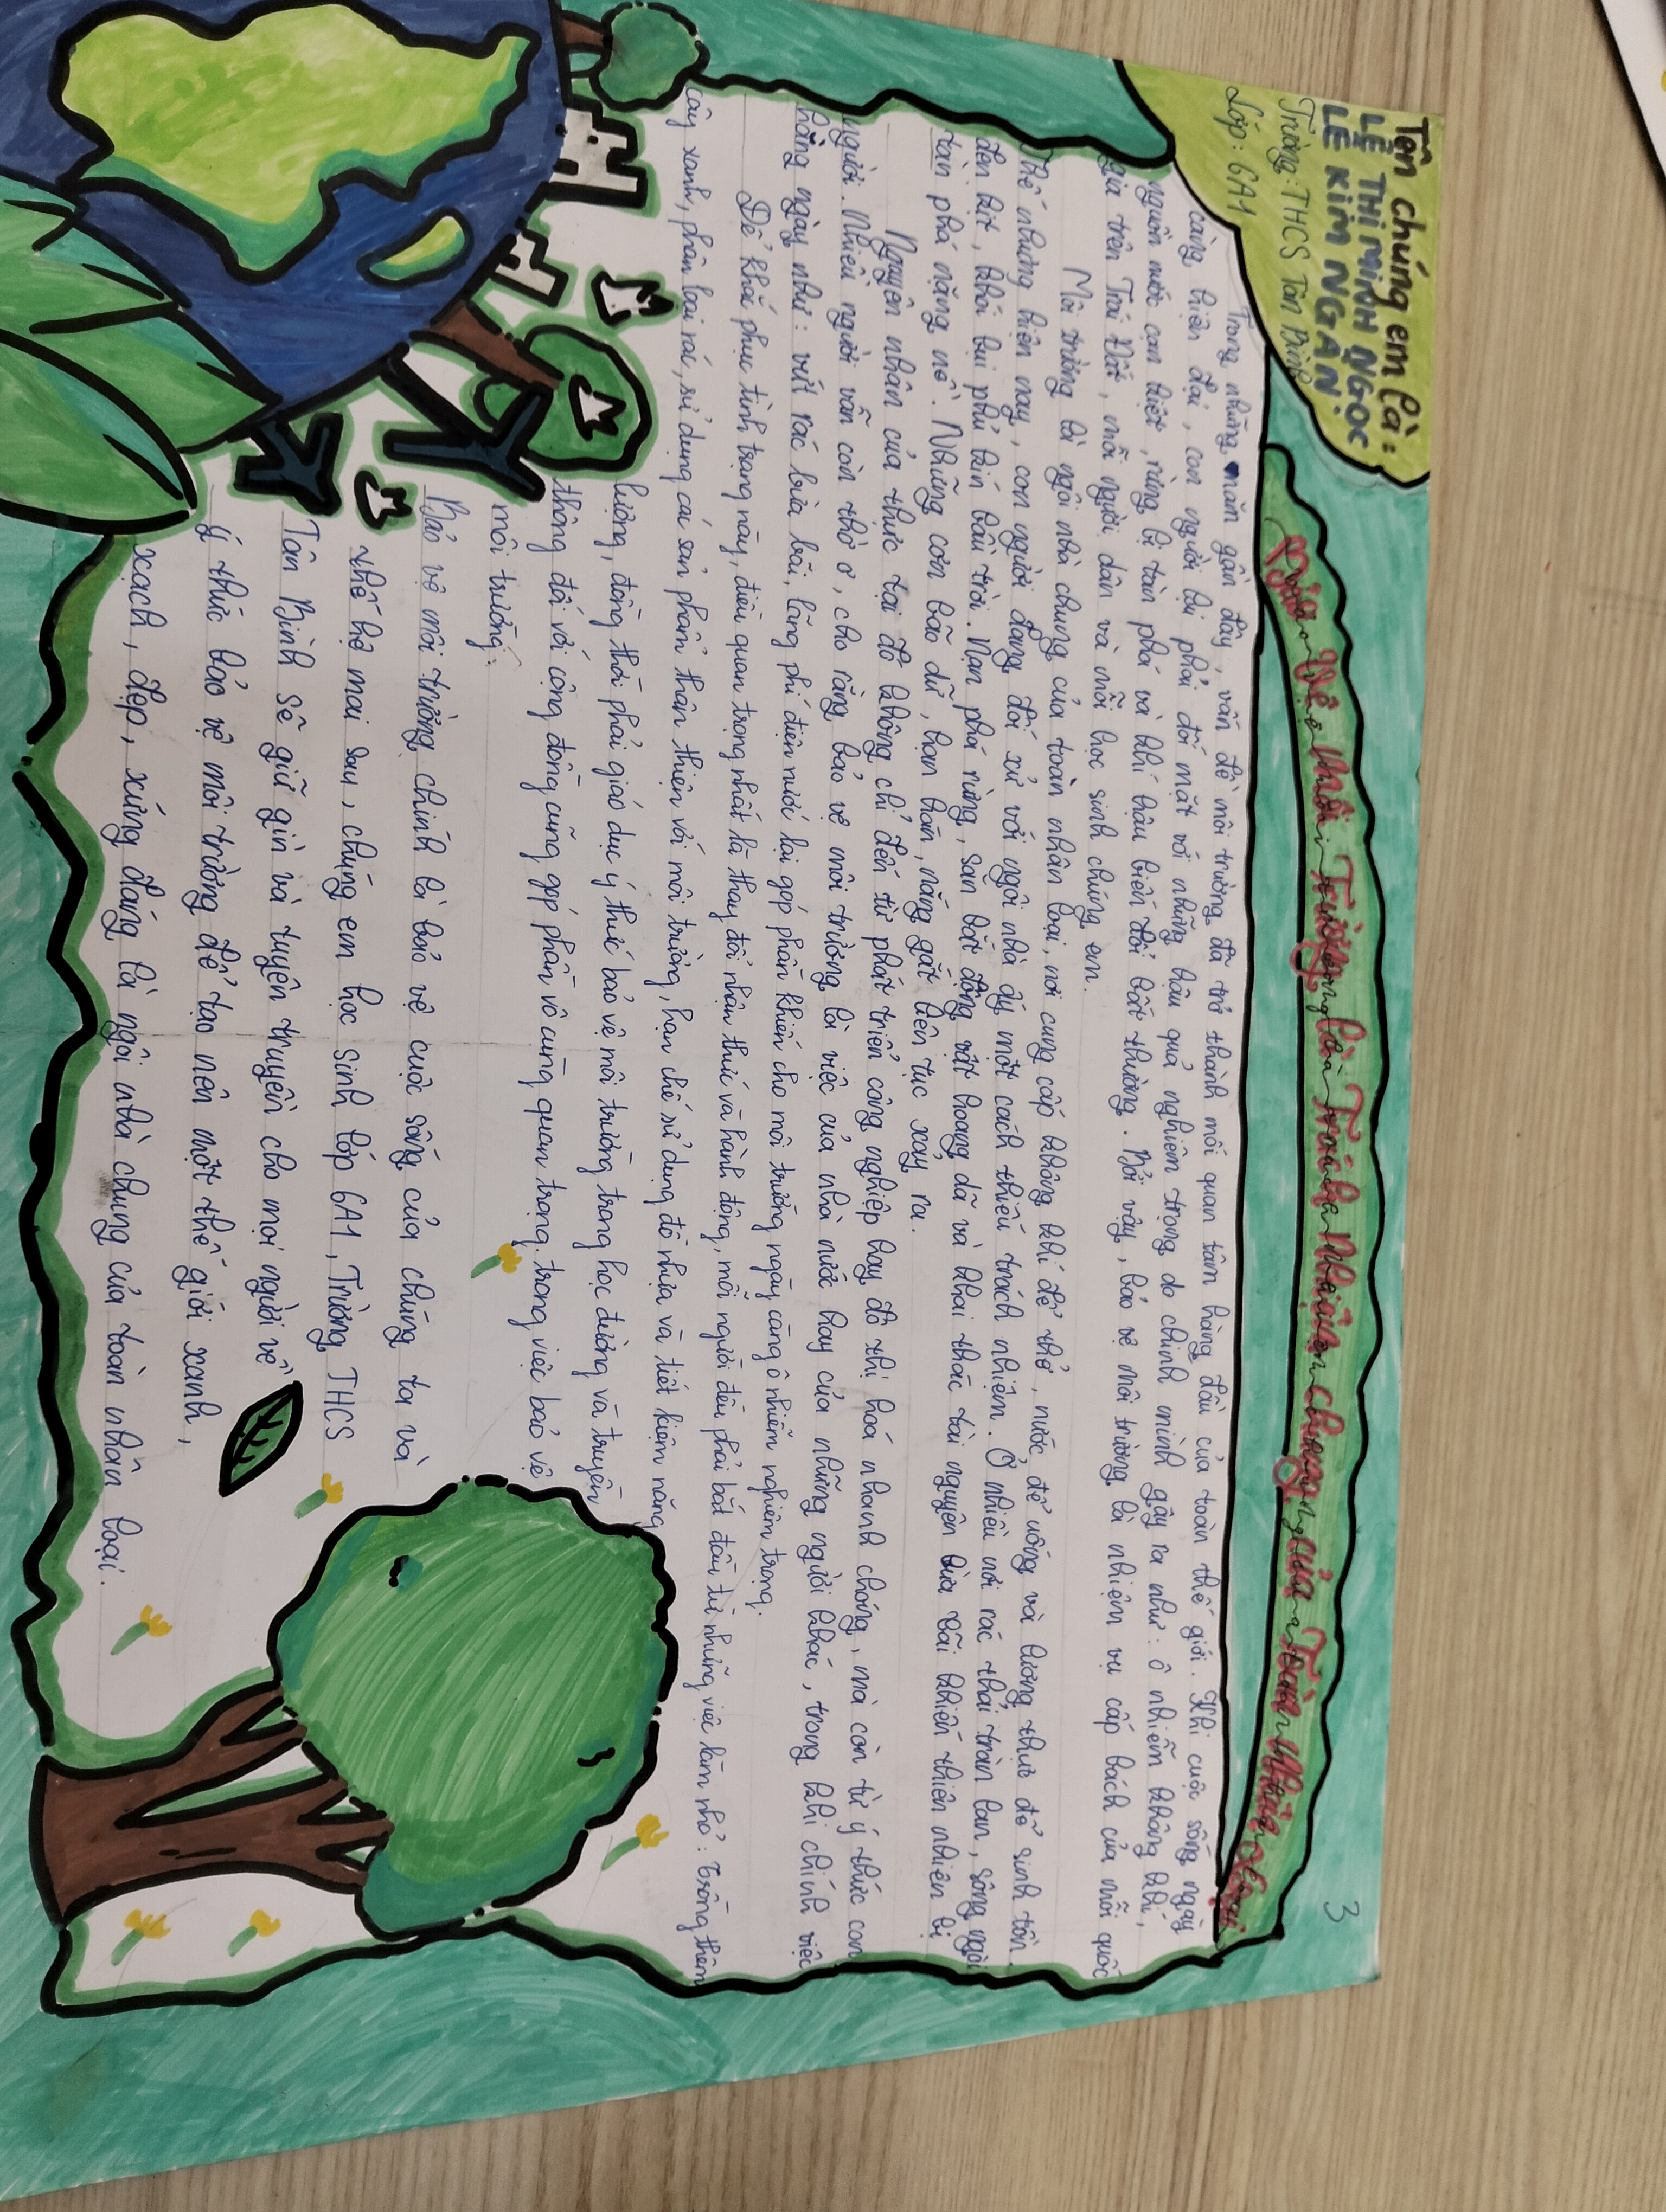 Tên chúng em là:
LÊ THỊ MINH NGỌC
LÊ KIM NGÂN.
Trường: THCS Tân Bình
Lớp: 6A1
3
Bảo Vệ Môi Trường Là Trách Nhiệm Chung Của Toàn Nhân Loại
Trong những năm gần đây, vấn đề môi trường đã trở thành mối quan tâm hàng đầu của toàn thế giới. Khi cuộc sống ngày
càng hiện đại, con người lại phải đối mặt với những hậu quả nghiêm trọng do chính mình gây ra như: ô nhiễm không khí,
nguồn nước cạn kiệt, rừng bị tàn phá và khí hậu biến đổi bất thường. Bởi vậy, bảo vệ môi trường là nhiệm vụ cấp bách của mỗi quốc
gia trên Trái Đất, mỗi người dân và mỗi học sinh chúng em.
Môi trường là ngôi nhà chung của toàn nhân loại, nơi cung cấp không khí để thở, nước để uống và lương thực để sinh tồn.
Thế nhưng hiện nay, con người đang đối xử với ngôi nhà ấy một cách thiếu trách nhiệm. Ở nhiều nơi rác thải tràn lan, sông ngòi
đen kịt, khói bụi phủ kín bầu trời. Nạn phá rừng, săn bắt động vật hoang dã và khai thác tài nguyên bừa bãi khiến thiên nhiên bị
tàn phá nặng nề. Những cơn bão dữ, hạn hán, nắng gắt liên tục xảy ra.
Nguyên nhân của thực tại đó không chỉ đến từ phát triển công nghiệp hay đô thị hoá nhanh chóng, mà còn từ ý thức con
người. Nhiều người vẫn còn thờ ơ, cho rằng bảo vệ môi trường là việc của nhà nước hay của những người khác, trong khi chính việc
hằng ngày như: vứt rác bừa bãi, lãng phí điện nước lại góp phần khiến cho môi trường ngày càng ô nhiễm nghiêm trọng.
Để khắc phục tình trạng này, điều quan trọng nhất là thay đổi nhận thức và hành động, mỗi người đều phải bắt đầu từ những việc làm nhỏ: trồng thêm
cây xanh, phân loại rác, sử dụng các sản phẩm thân thiện với môi trường, hạn chế sử dụng đồ nhựa và tiết kiệm năng
lượng, đồng thời phải giáo dục ý thức bảo vệ môi trường trong học đường và truyền
thông đối với cộng đồng cũng góp phần vô cùng quan trọng trong việc bảo vệ
môi trường.
Bảo vệ môi trường chính là bảo vệ cuộc sống của chúng ta và
thế hệ mai sau, chúng em học sinh lớp 6A1, Trường THCS
Tân Bình sẽ giữ gìn và tuyên truyền cho mọi người về
ý thức bảo vệ môi trường để tạo nên một thế giới xanh,
sạch, đẹp, xứng đáng là ngôi nhà chung của toàn nhân loại.